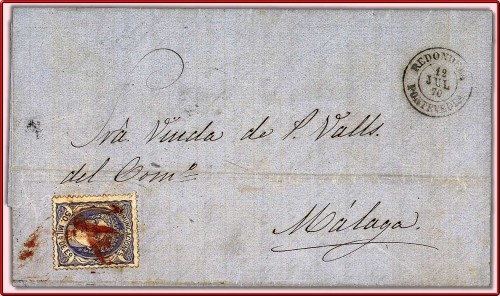 REDONDELA
12
JUL
70
PONTEVEDRA
Sra Viuda de P. Valls.
del Como
Málaga.
50 MIL